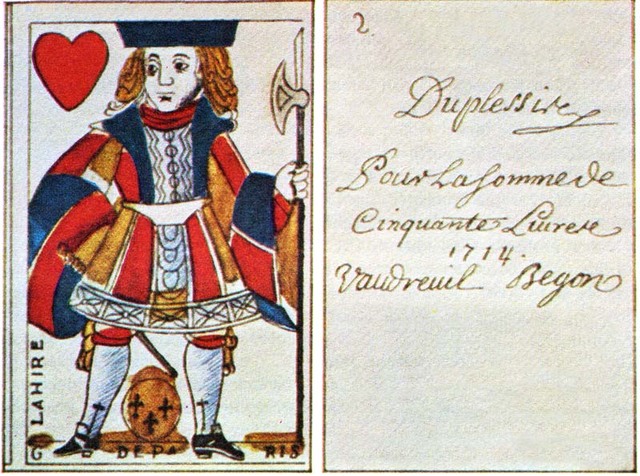 LAHIRE
G DE PA RIS
2.
Duplessis
Pour La Somme de
Cinquante Liures
1714.
Vaudreuil Begon